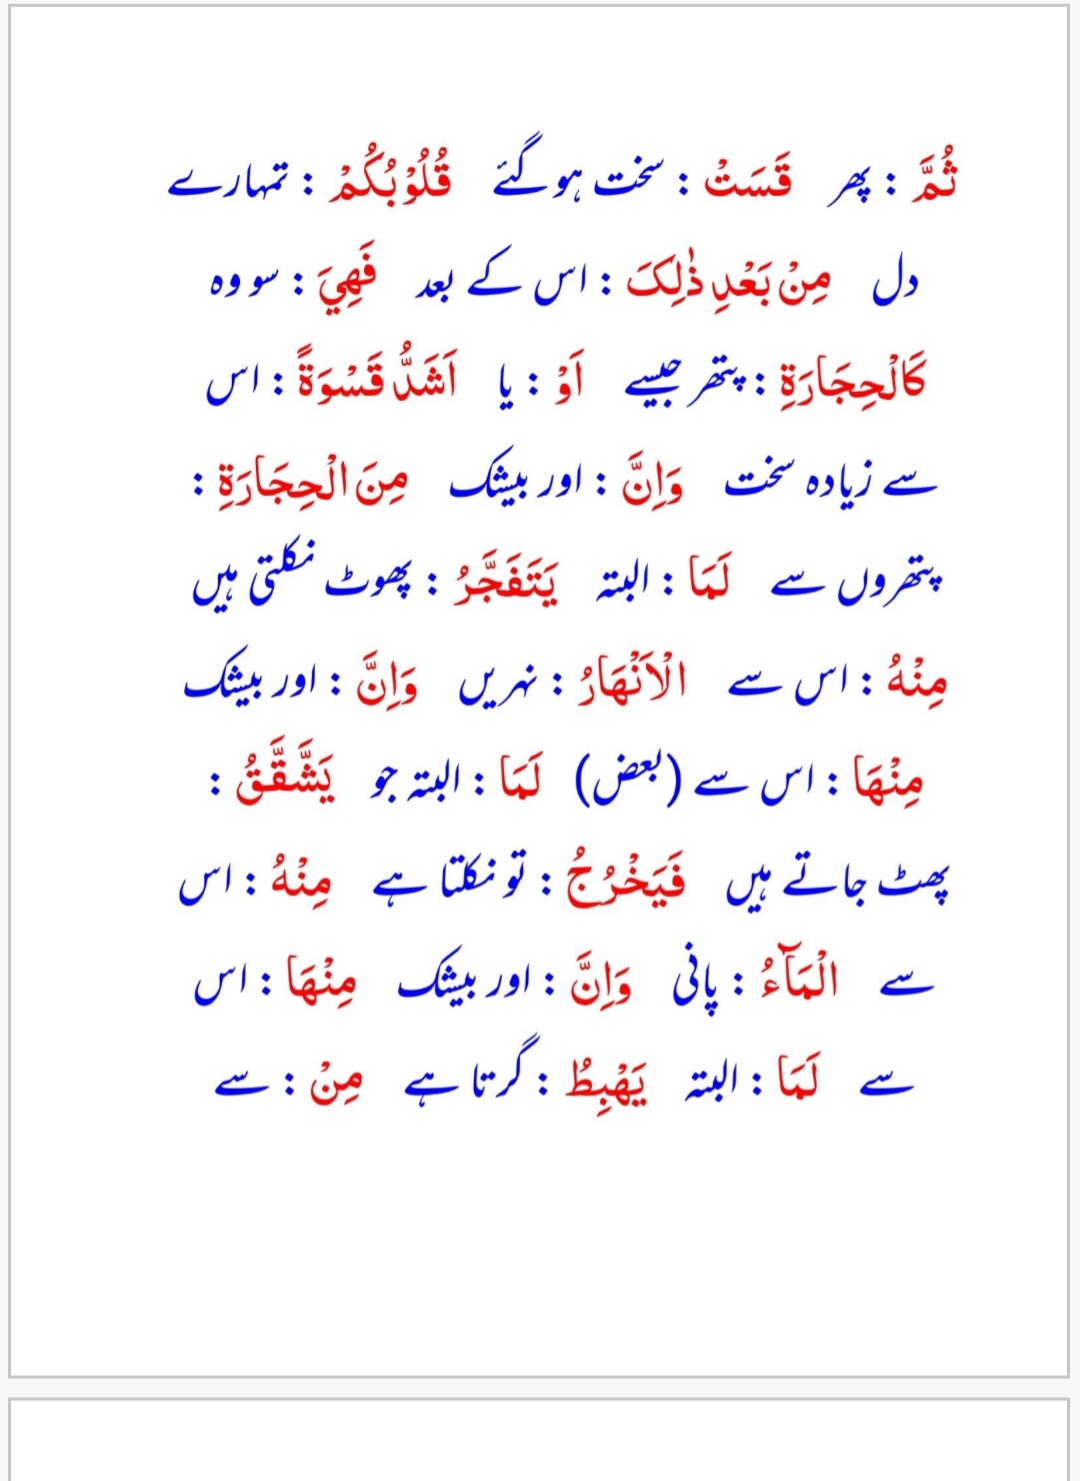 ثُمَّ : پھر قَسَتْ : سخت ہوگئے قُلُوْبُكُمْ : تمہارے
دل مِنْۢ بَعْدِ ذٰلِکَ : اس کے بعد فَهِيَ : سو وہ
كَالْحِجَارَةِ : پتھر جیسے اَوْ : یا اَشَدُّ قَسْوَةً : اس
سے زیادہ سخت وَاِنَّ : اور بیشک مِنَ الْحِجَارَةِ :
پتھروں سے لَمَا : البتہ يَتَفَجَّرُ : پھوٹ نکلتی ہیں
مِنْهُ : اس سے الْاَنْهَارُ : نہریں وَاِنَّ : اور بیشک
مِنْهَا : اس سے (بعض) لَمَا : البتہ جو يَشَّقَّقُ :
پھٹ جاتے ہیں فَيَخْرُجُ : تو نکلتا ہے مِنْهُ : اس
سے الْمَآءُ : پانی وَاِنَّ : اور بیشک مِنْهَا : اس
سے لَمَا : البتہ يَهْبِطُ : گرتا ہے مِنْ : سے